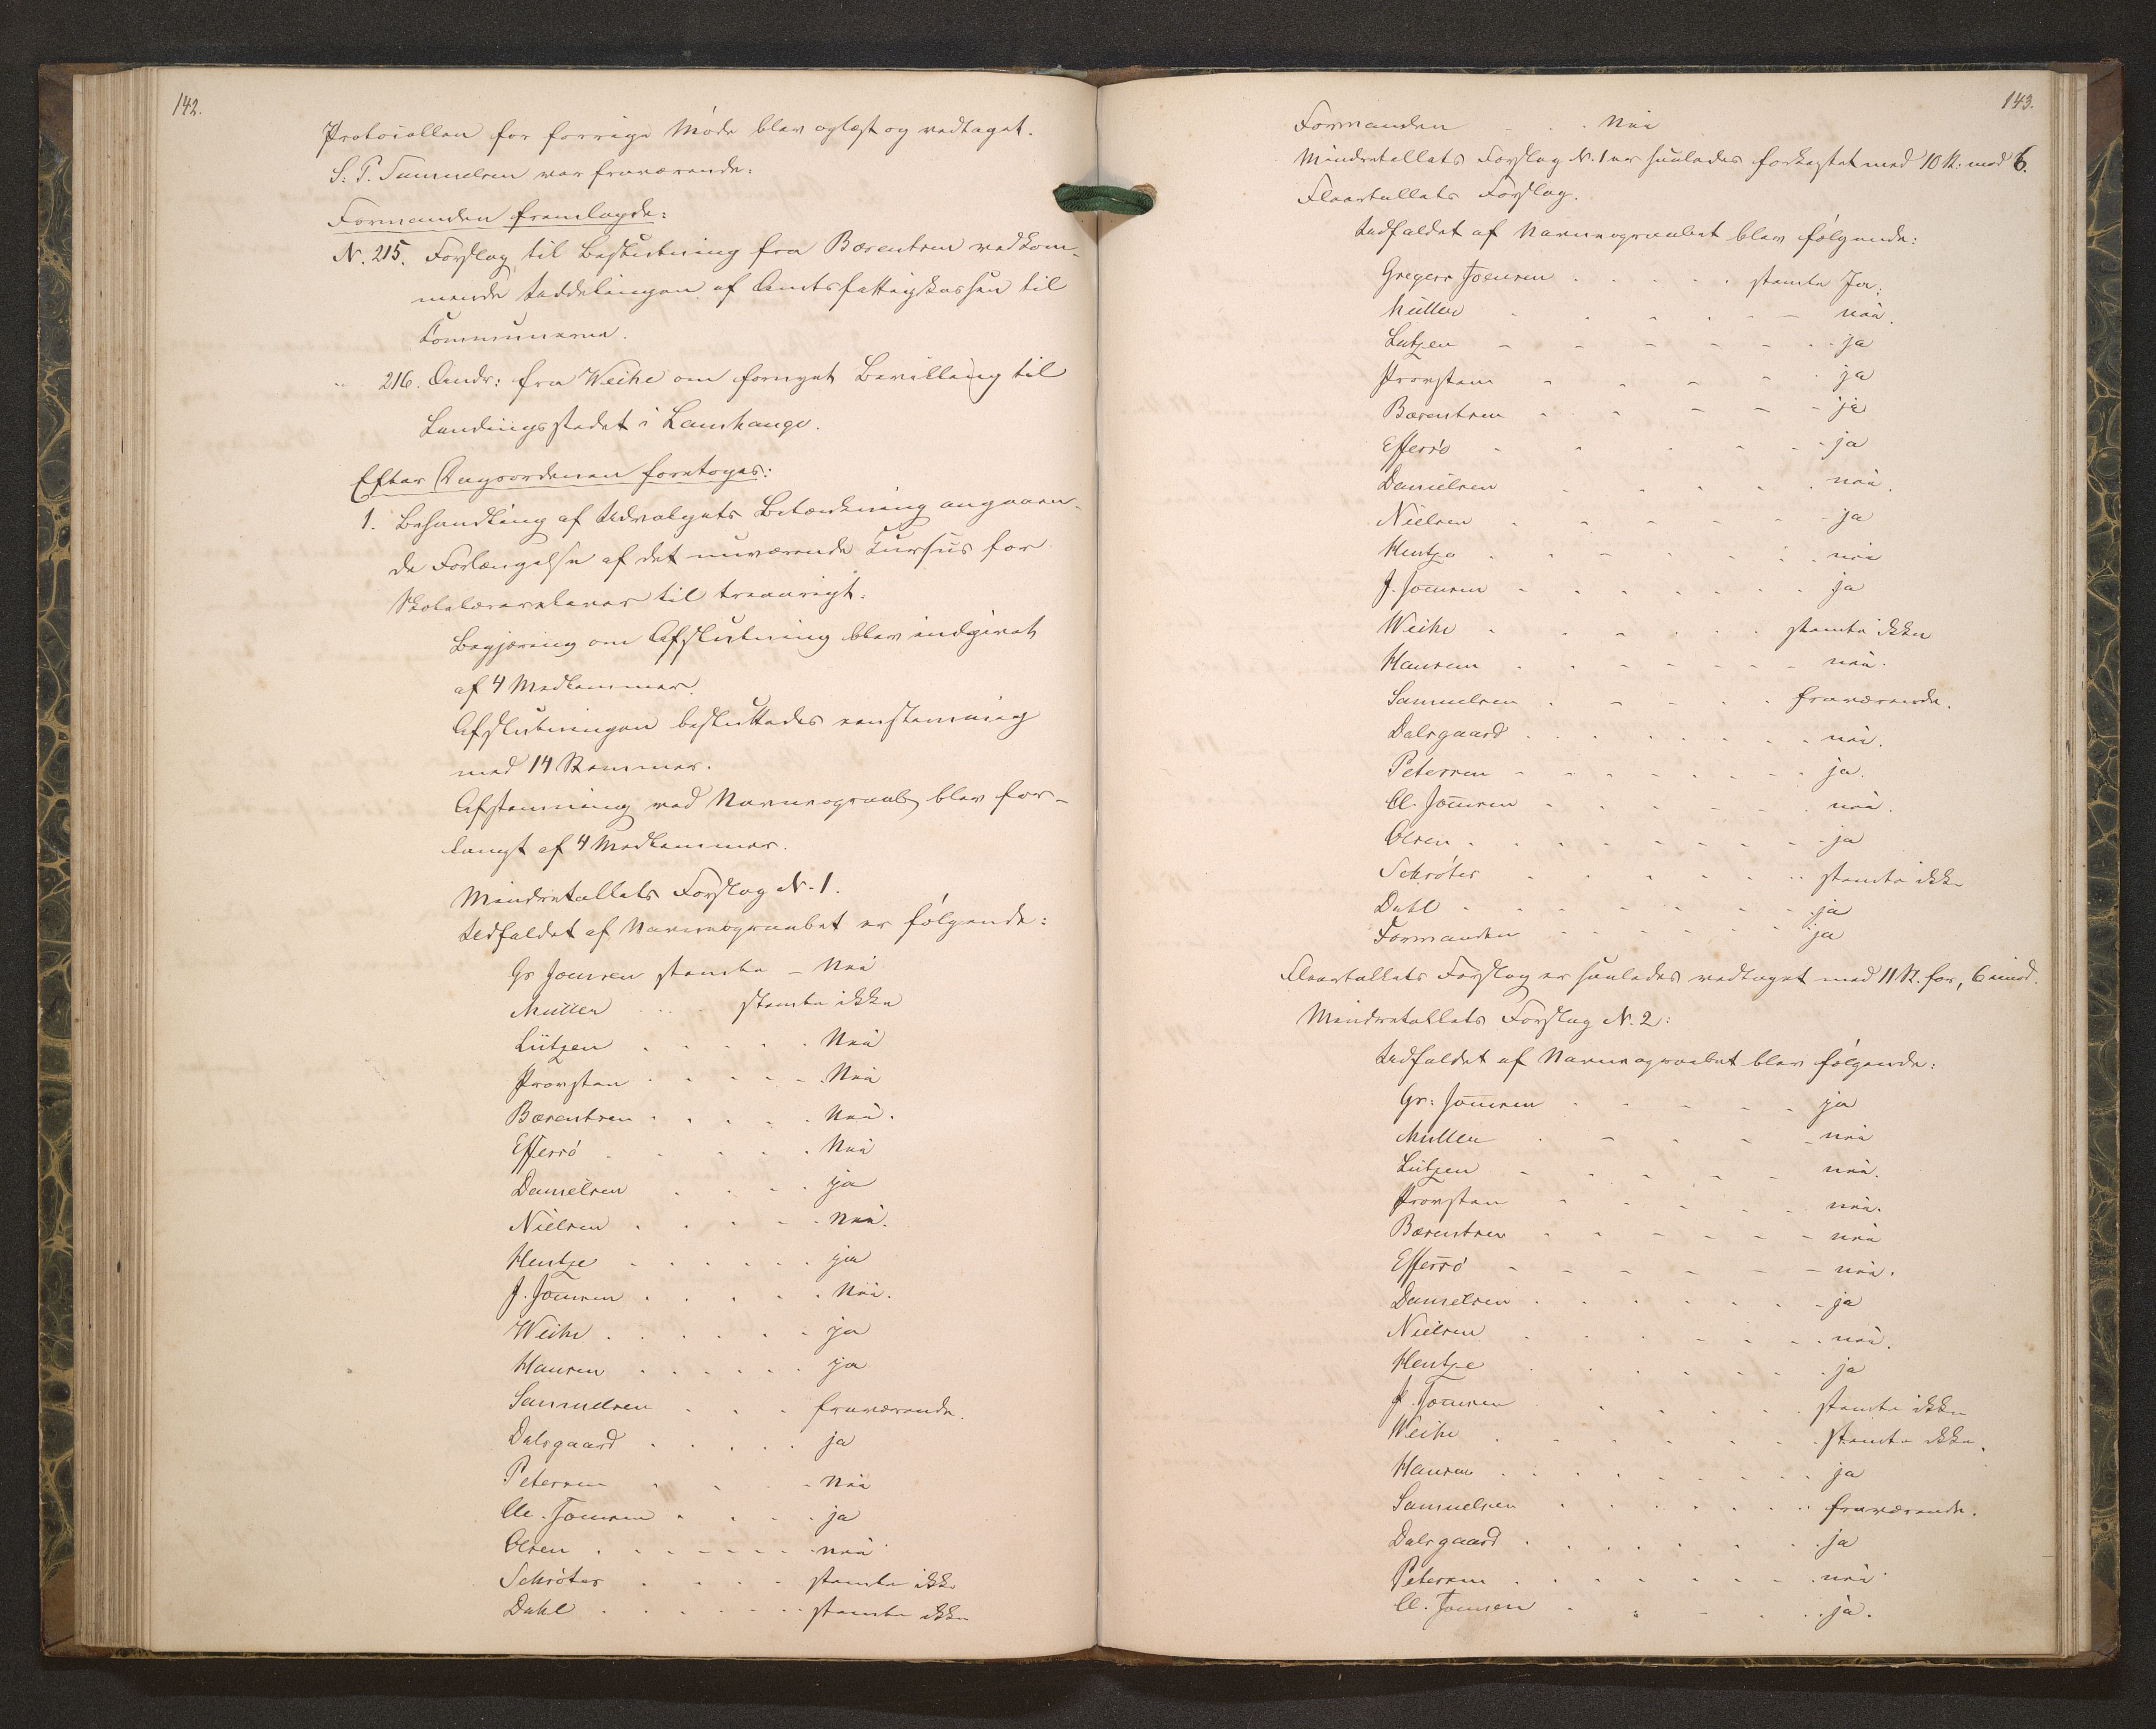 142.
Protocollen for forrige Møde blev oplæst og vedtaget.
S. P. Samuelsen var fraværende.
Formanden fremlagde:
N. 215. Forslag til Beslutning fra Bærentsen vedkom-
mende Uddelingen af Amtsfattigkassen til
Communerne.
" 216. Andr: fra Weihe om fornyet Bevilling til
Landingsstedet i Lamhauge.
Efter Dagsordenen foretoges:
1. Behandling af Udvalgets Betænkning angaaen-
de Forlængelse af det nuværende Cursus for
Skolelærerelever til treaarigt.
Begjæring om Afslutning blev indgivet
af 4 Medlemmer.
Afslutningen besluttedes eenstemmig
med 14 Stemmer.
Afstemning ved Navneopraab blev for-
langt af 4 Medlemmer.
Mindretallets Forslag N. 1.
Udfaldet af Navneopraabet er følgende:
Gr Joensen stemte - Nei
Müller . . . stemte ikke
Lützen . . . . . Nei
Provsten . . . . . Nei
Bærentsen . . . . . Nei.
Effersö . . . . . Nei
Danielsen . . . . ja
Nielsen . . . . . Nei.
Hentze . . . . . . ja
J. Joensen . . . . . Nei.
Weihe . . . . . . ja
Hansen . . . . . . ja
Samuelsen . . . fraværende.
Dalsgaard . . . . . ja
Petersen . . . . Nei
Cl. Joensen . . . . ja
Olsen . . . . . . . nei
Schröter . . . . stemte ikke
Dahl . . . . . . . stemte ikke
143.
Formanden . . . Nei
Mindretallets Forslag N. 1 er saaledes forkastet med 10 St. mod 6.
Fleertallets Forslag.
Udfaldet af Navneopraabet blev følgende:
Gregers Joensen . . . . . stemte Ja.
Müller . . . . . . nei.
Lützen - - - - - - . ja
Provsten - - - - . ja
Bærentsen - - - - - - ja
Effersö - - - - - ja
Danielsen . . . . . nei.
Nielsen . - - - - - ja
Hentze . . - - - . . nei
J. Joensen - . . . . . . ja
Weihe . . . . . . stemte ikke
Hansen . . . . . . - nei.
Samuelsen . - - . . fraværende.
Dalsgaard . . . . . . . . nei.
Petersen - - - - - - - . ja.
Cl. Joensen - . - - - - . nei.
Olsen . . . . . . - - - ja
Schröter . . . . . . . stemte ikke
Dahl . . . . . . - - ja
Formanden . . . . . . . ja
Fleertallets Forslag er saaledes vedtaget med 11 St. for, 6 imod.
Mindretallets Forslag N. 2:
Udfaldet af Navneopraabet blev følgende:
Gr: Joensen . - - - - . ja
Müller . - - - - nei
Lützen - - - - - nei.
Provsten - - - - - . nei.
Bærentsen - - - - - - nei
Effersö - - - - - - nei.
Danielsen . . . . . . - ja
Nielsen . . . . - - . . nei.
Hentze . . . . . . . ja
J. Joensen . . . . . . stemte ikke
Weihe . . . . . . . stemte ikke.
Hansen . . . . . . . . . ja
Samuelsen . . . . . . . fraværende.
Dalsgaard . . . . . . . ja
Petersen . . . . . - - . nei
Cl. Joensen . . - . . . ja.